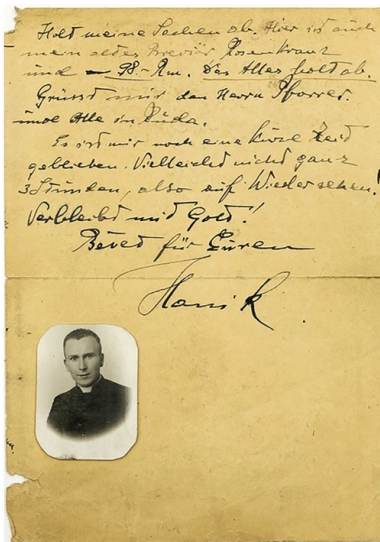 Holt meine Sachen ab. Hier ist auch
mein altes Brevier Rosenkranz
und – 98.- Rm. Das Alles holt ab.
Grüsst mir den Herrn Pfarrer.
und Alle in Ruda.
Es ist mir noch eine kurze Zeit
geblieben. Vielleicht nicht ganz
3 Stunden, also auf Wiedersehen!
Verbleibt mit Gott!
Betet für Euren
Hanik